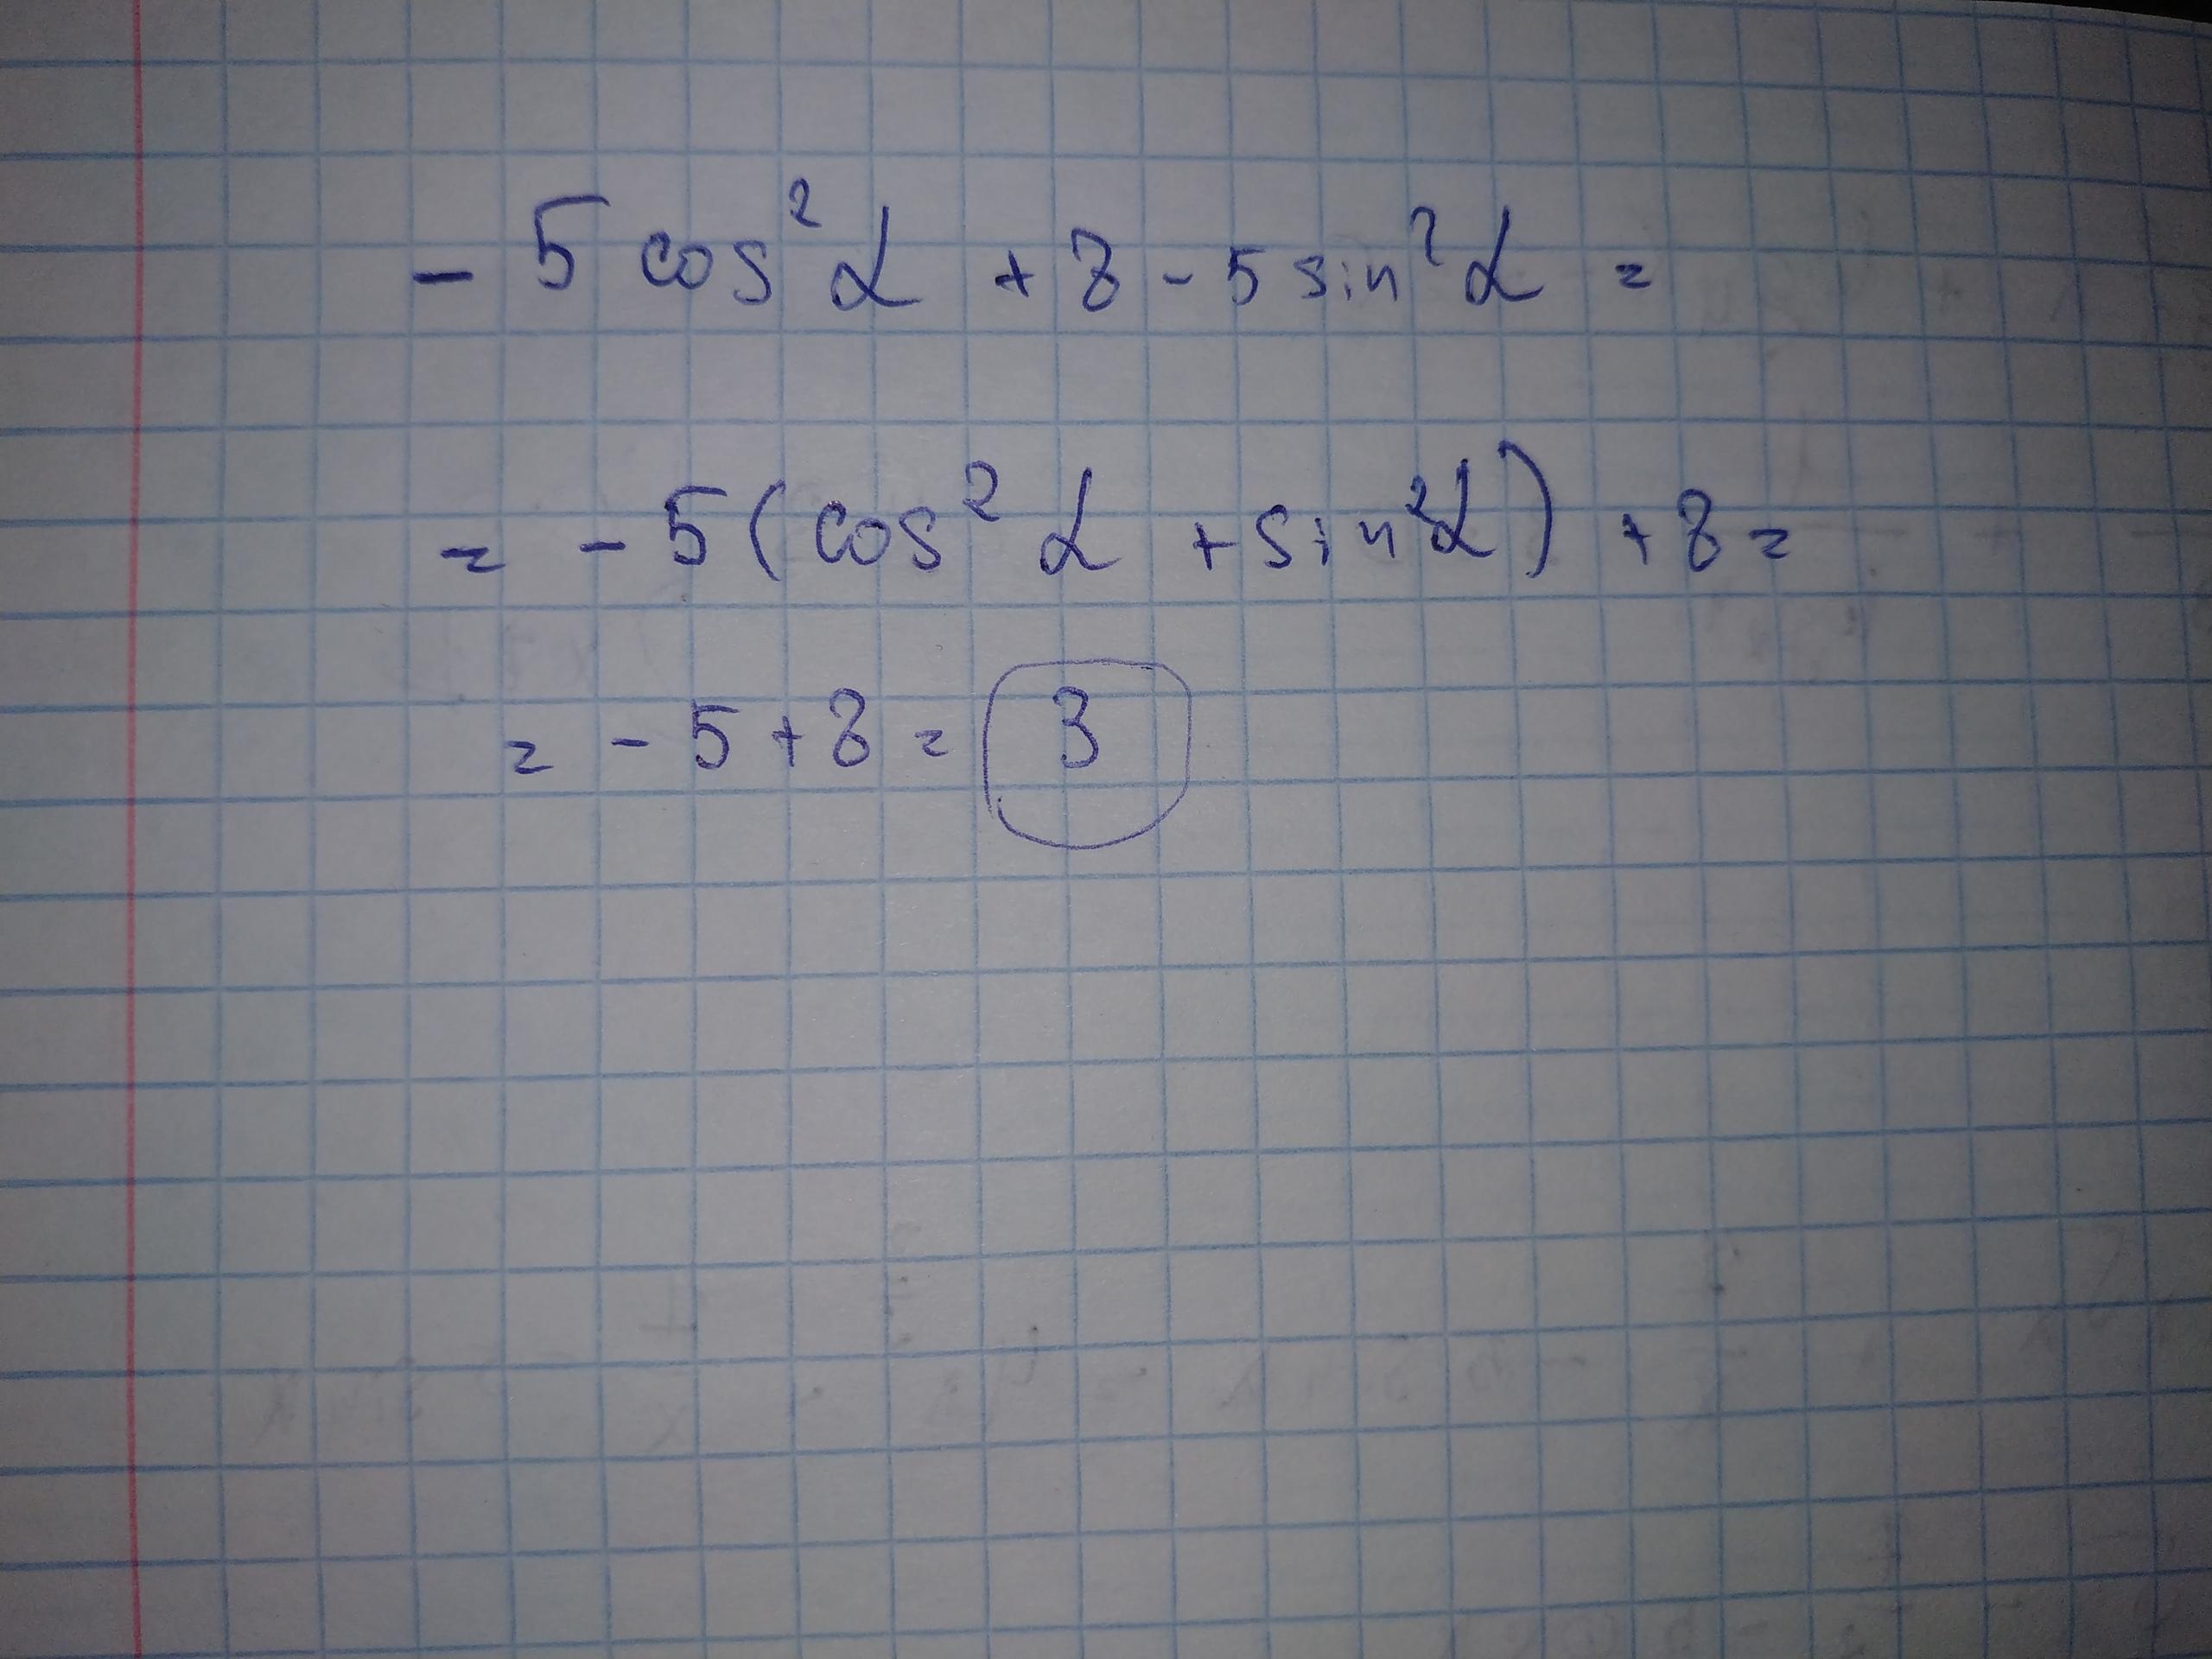 - 5 cos² α + 8 - 5 sin² α =
= - 5 ( cos² α + sin² α ) + 8 =
= - 5 + 8 = 3